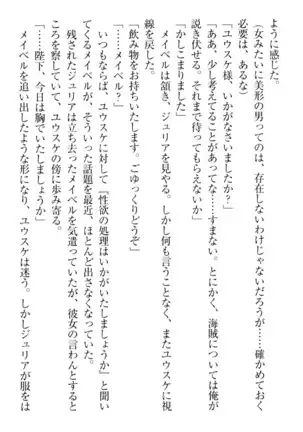 ように感じた。
（女みたいに美形の男ってのは、存在しないわけじゃないだろうが……確かめておく
必要は、あるな）
「ユウスケ様、いかがなさいましたか？」
「ああ、少し考えてることがあってな……すまない。とにかく、海賊については俺が
説き伏せる。それまで待ってもらえないか？」
「かしこまりました」
メイベルは頷き、ジュリアを見やる。しかし何も言うことなく、またユウスケに視
線を戻した。
「飲み物をお持ちいたします。ごゆっくりどうぞ」
「……メイベル？」
いつもならば、ユウスケに対して『性欲の処理はいかがいたしましょうか』と聞い
てくるメイベルが、そういった話題を最近、ほとんど出さなくなっていた。
残されたジュリアは立ち去ったメイベルを気遣っていたが、彼女の言わんとすると
ころを察していて、ユウスケの傍に歩み寄る。
「……陛下、今日は胸でいたしましょうか」
メイベルを追い出したような形になり、ユウスケは迷う。しかしジュリアが服をは